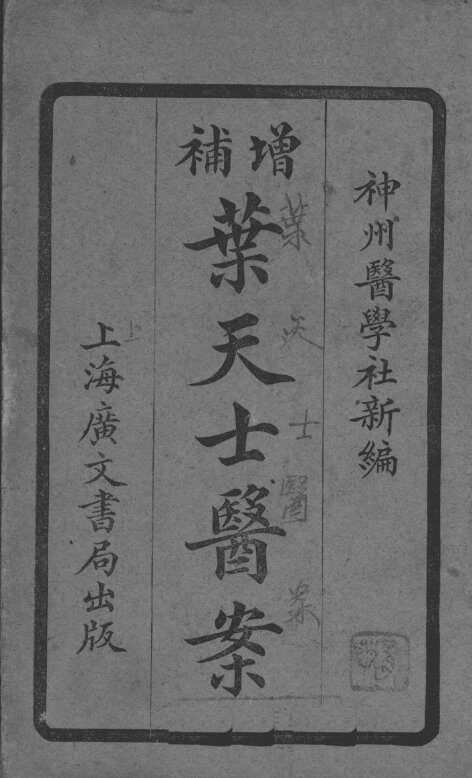 神州醫學社新編
增補
葉天士醫案
葉天士醫案
上海廣文書局出版
上